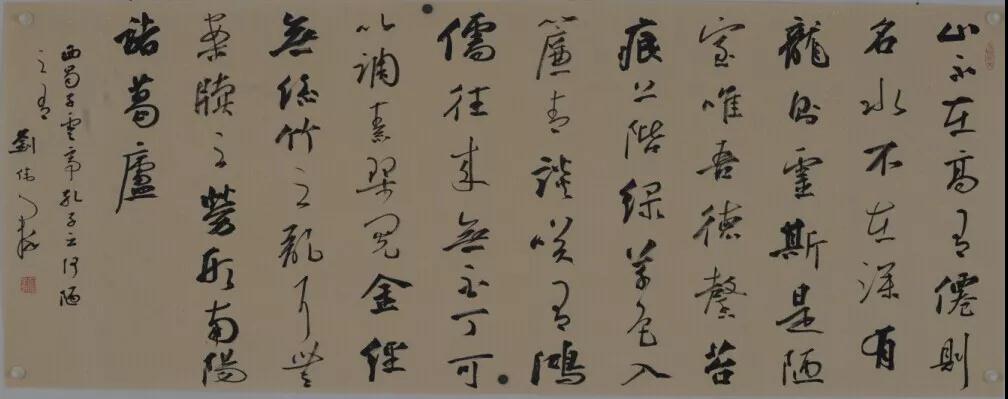 山不在高有僊則
名水不在深有
龍則靈斯是陋
室唯吾德馨苔
痕上階綠草色入
簾青談咲有鴻
儒往來無白丁可
以調素琴閱金經
無絲竹之亂耳無
案牘之勞形南陽
諸葛廬
西蜀子雲亭孔子云何陋
之有
劉偉